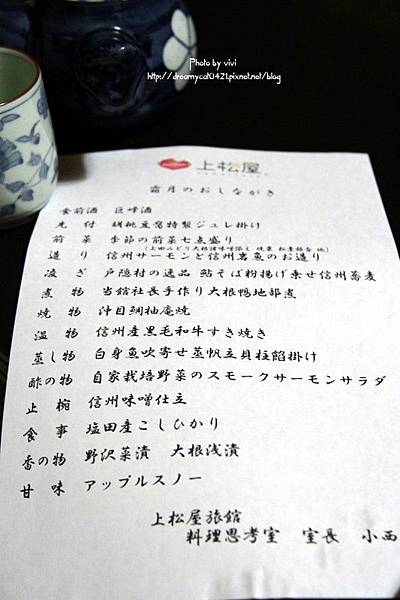 Photo by vivi
http://dreamycat0421.pixnet.net/blog
上松屋
霜月のおしながき
食前酒 巨峰酒
先付 胡桃豆腐特製ジュレ掛け
前菜 季節の前菜七点盛り
造り 信州サーモンと信州岩魚のお造り
凌ぎ 戸隠村の逸品 鮎そば粉揚げ乗せ信州蕎麦
煮物 当館社長手作り大根鴨地部煮
焼物 沖目鯛柚庵焼
温物 信州産黒毛和牛すき焼き
蒸し物 白身魚吹寄せ蒸帆立貝柱餡掛け
酢の物 自家栽培野菜のスモークサーモンサラダ
止椀 信州味噌仕立
食事 塩田産こしひかり
香の物 野沢菜漬 大根浅漬
甘味 アップルスノー
上松屋旅館
料理思考室 室長 小西